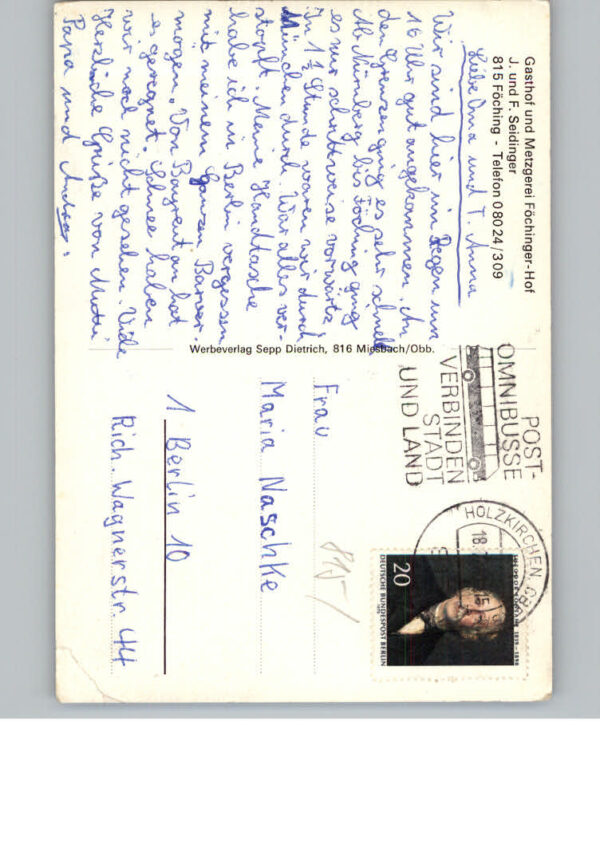 Gasthof und Metzgerei Föchinger-Hof
J. und F. Seidinger
815 Föching - Telefon 08024/309
Liebe Oma und T. Anna
Wir sind hier im Regen um
16 Uhr gut angekommen. An
den Grenzen ging es sehr schnell
Ab Nürnberg bis Föching ging
es nur schrittweise vorwärts
In 1½ Stunde waren wir durch
München durch. War alles ver-
stopft. Meine Handtasche
habe ich in Berlin vergessen
mit meinem ganzen Barver-
mögen. Von Bayreut an hat
es geregnet. Schnee haben
wir noch nicht gesehen. Viele
Herzliche Grüße von Mutti
Papa und
Werbeverlag Sepp Dietrich, 816 Miesbach/Obb.
POST-
OMNIBUSSE
VERBINDEN
STADT
UND LAND
HOLZKIRCHEN, OBB
18
20
DEUTSCHE BUNDESPOST BERLIN
815
Frau
Maria Naschke
1 Berlin 10
Rich. Wagnerstr. 44